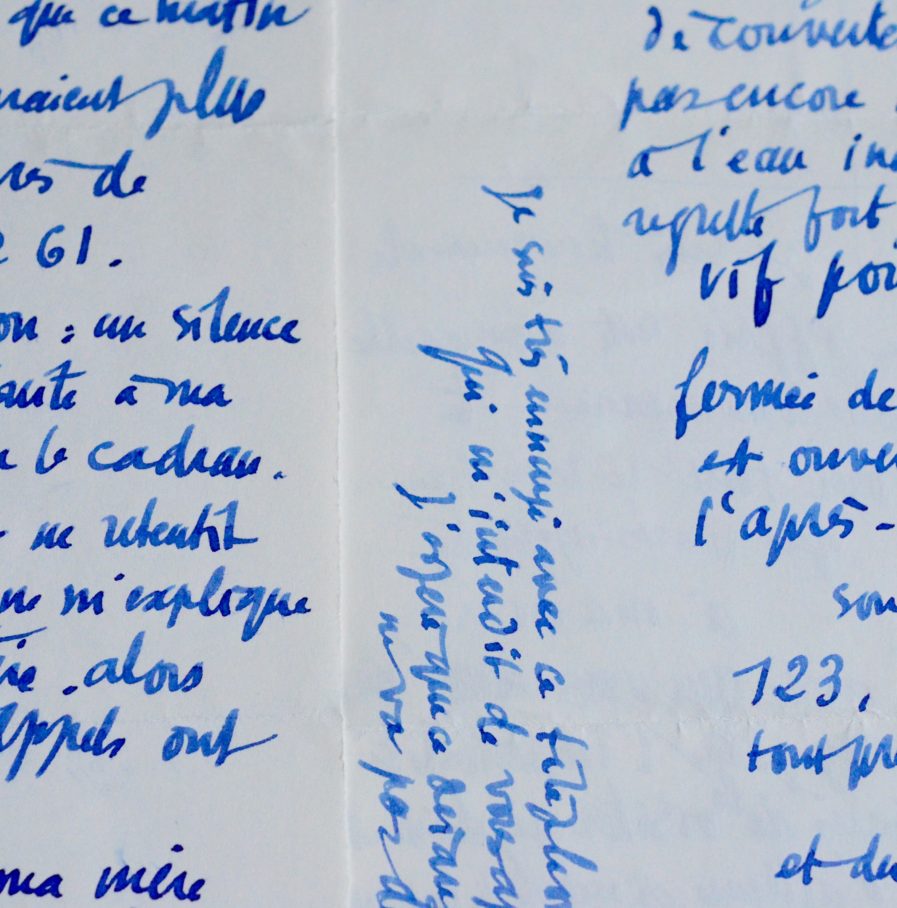 que ce matin
plus
de
61.
: un silence
à ma
le cadran.
ne retentit
m'explique
alors
appels ont
ma mère
Je suis très ennuyé avec ce téléphon
qui m'interdit de vous ap
J'espère que ce déran
ne va pas d
découverte
pas encore
à l'eau
regrette fort
vif
fermée de
et ouver
l'après-
son
123,
tout pr
et du